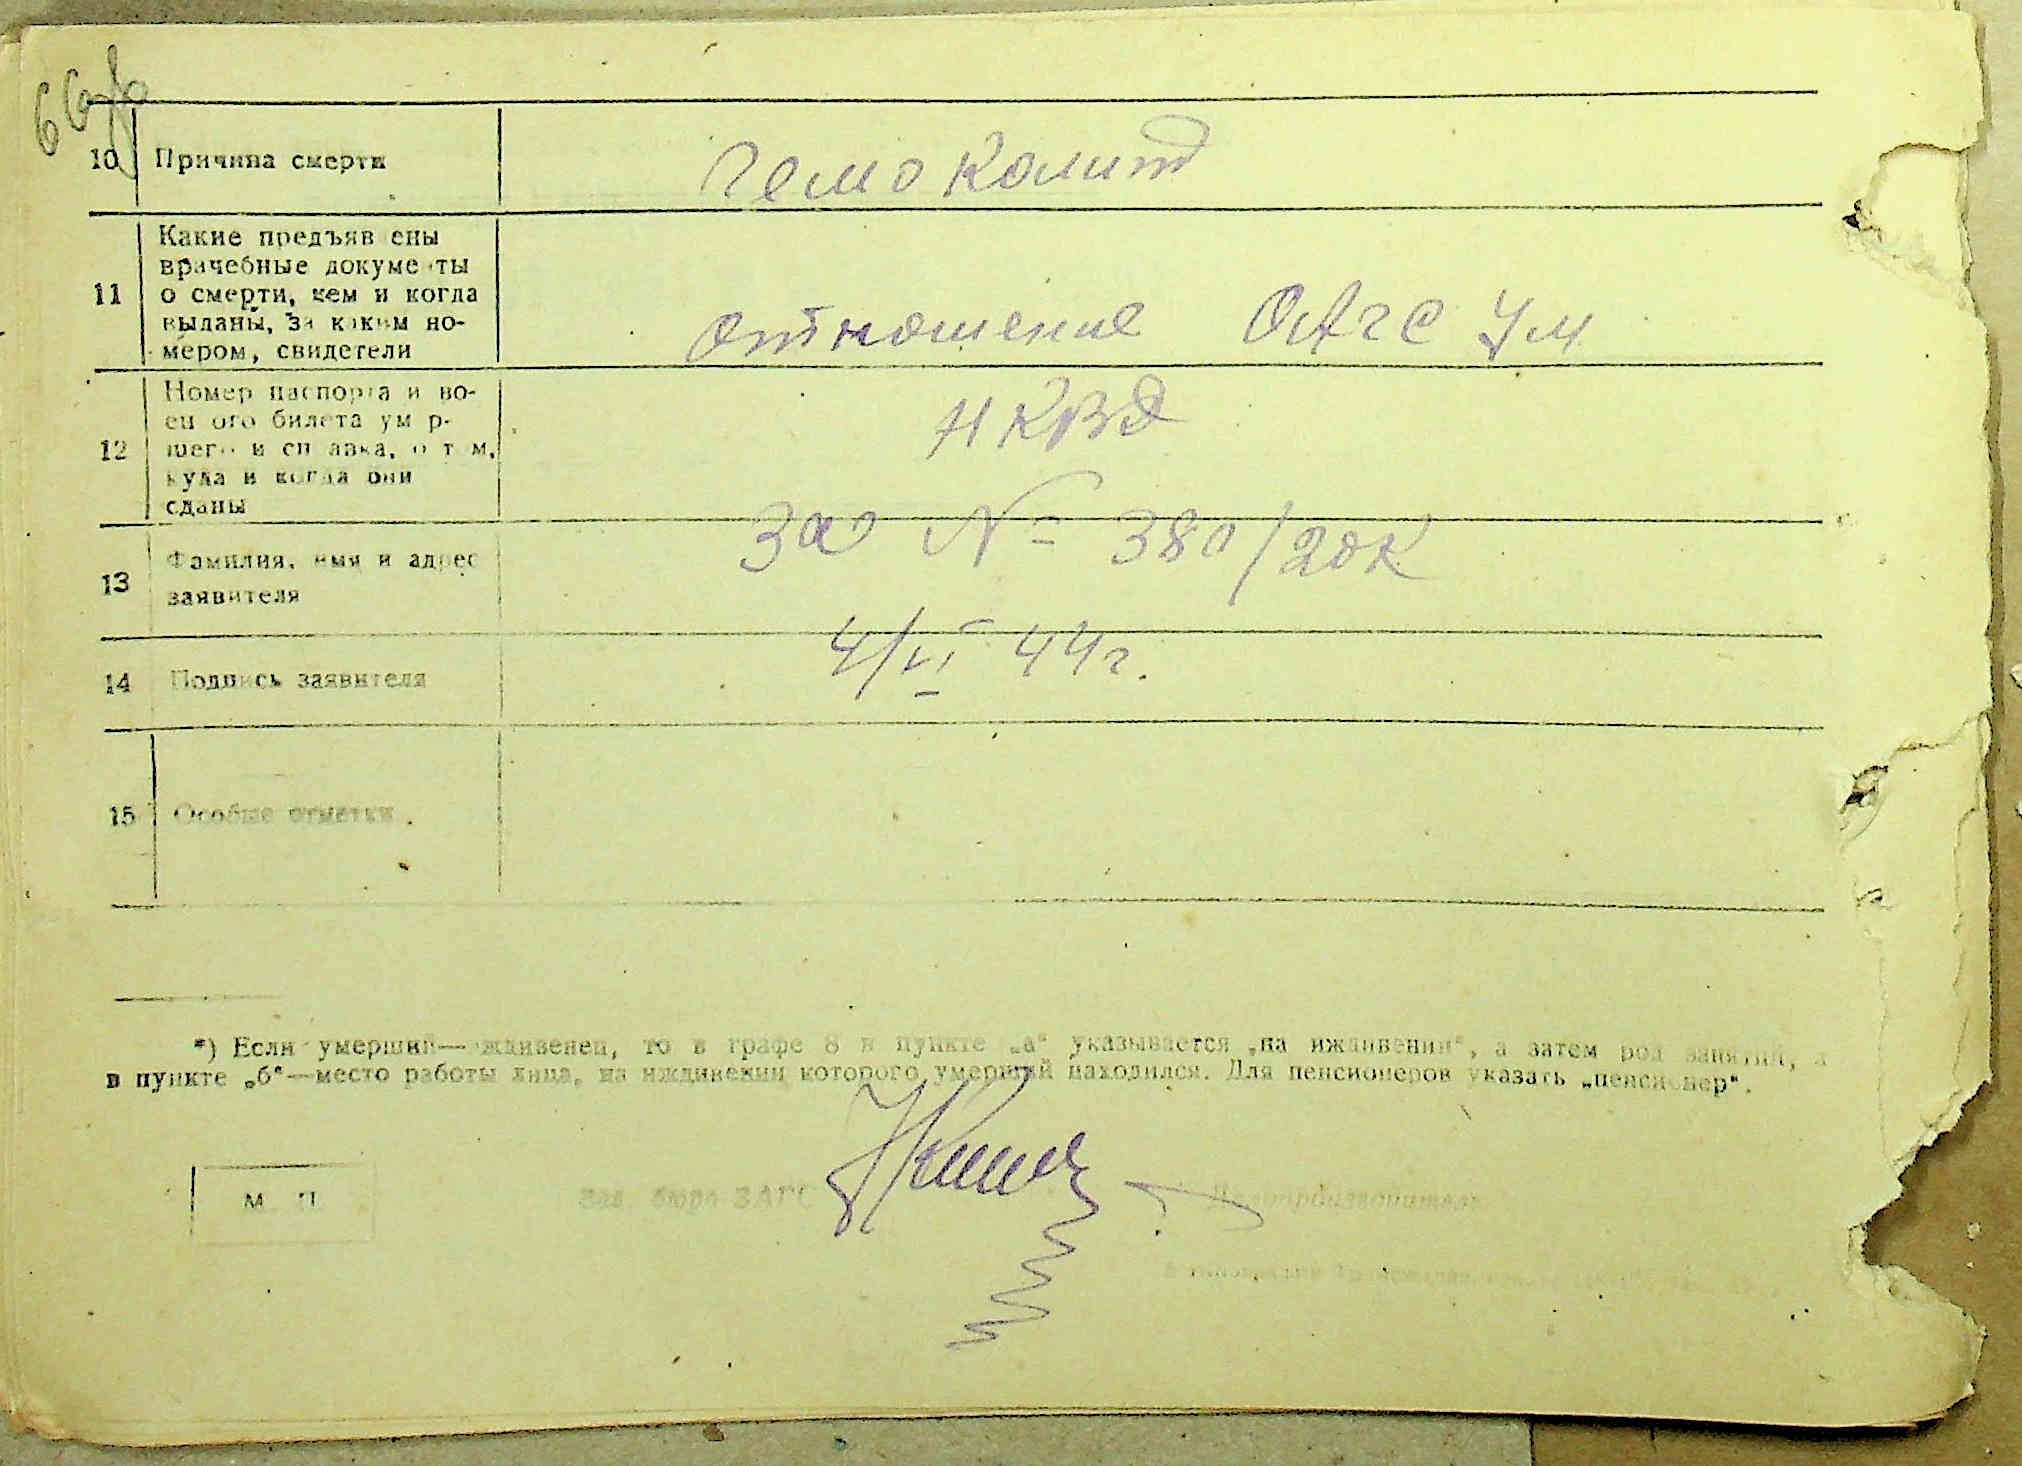 66об
10 Причина смерти
Гемоколит
11 Какие предъяв ены
врачебные докуме ты
о смерти, кем и когда
выданы, за каким но-
мером, свидетели
отношение ОАГС УМ
12 Номер паспорта и во-
ен ого билета ум р-
шего и сп авка, о т м,
куда и когда они
сданы
НКВД
За № 380/20к
13 Фамилия, имя и адрес
заявителя
4/VI 44 г.
14 Подпись заявителя
15 Особые отметки.
*) Если умерший—иждивенец, то в графе 8 в пункте „а“ указывается „на иждивении“, а затем род занятий, а
в пункте „б“—место работы лица, на иждивении которого умерший находился. Для пенсионеров указать „пенсионер“.
М. П.
Зав. бюро ЗАГС
Делопроизводитель